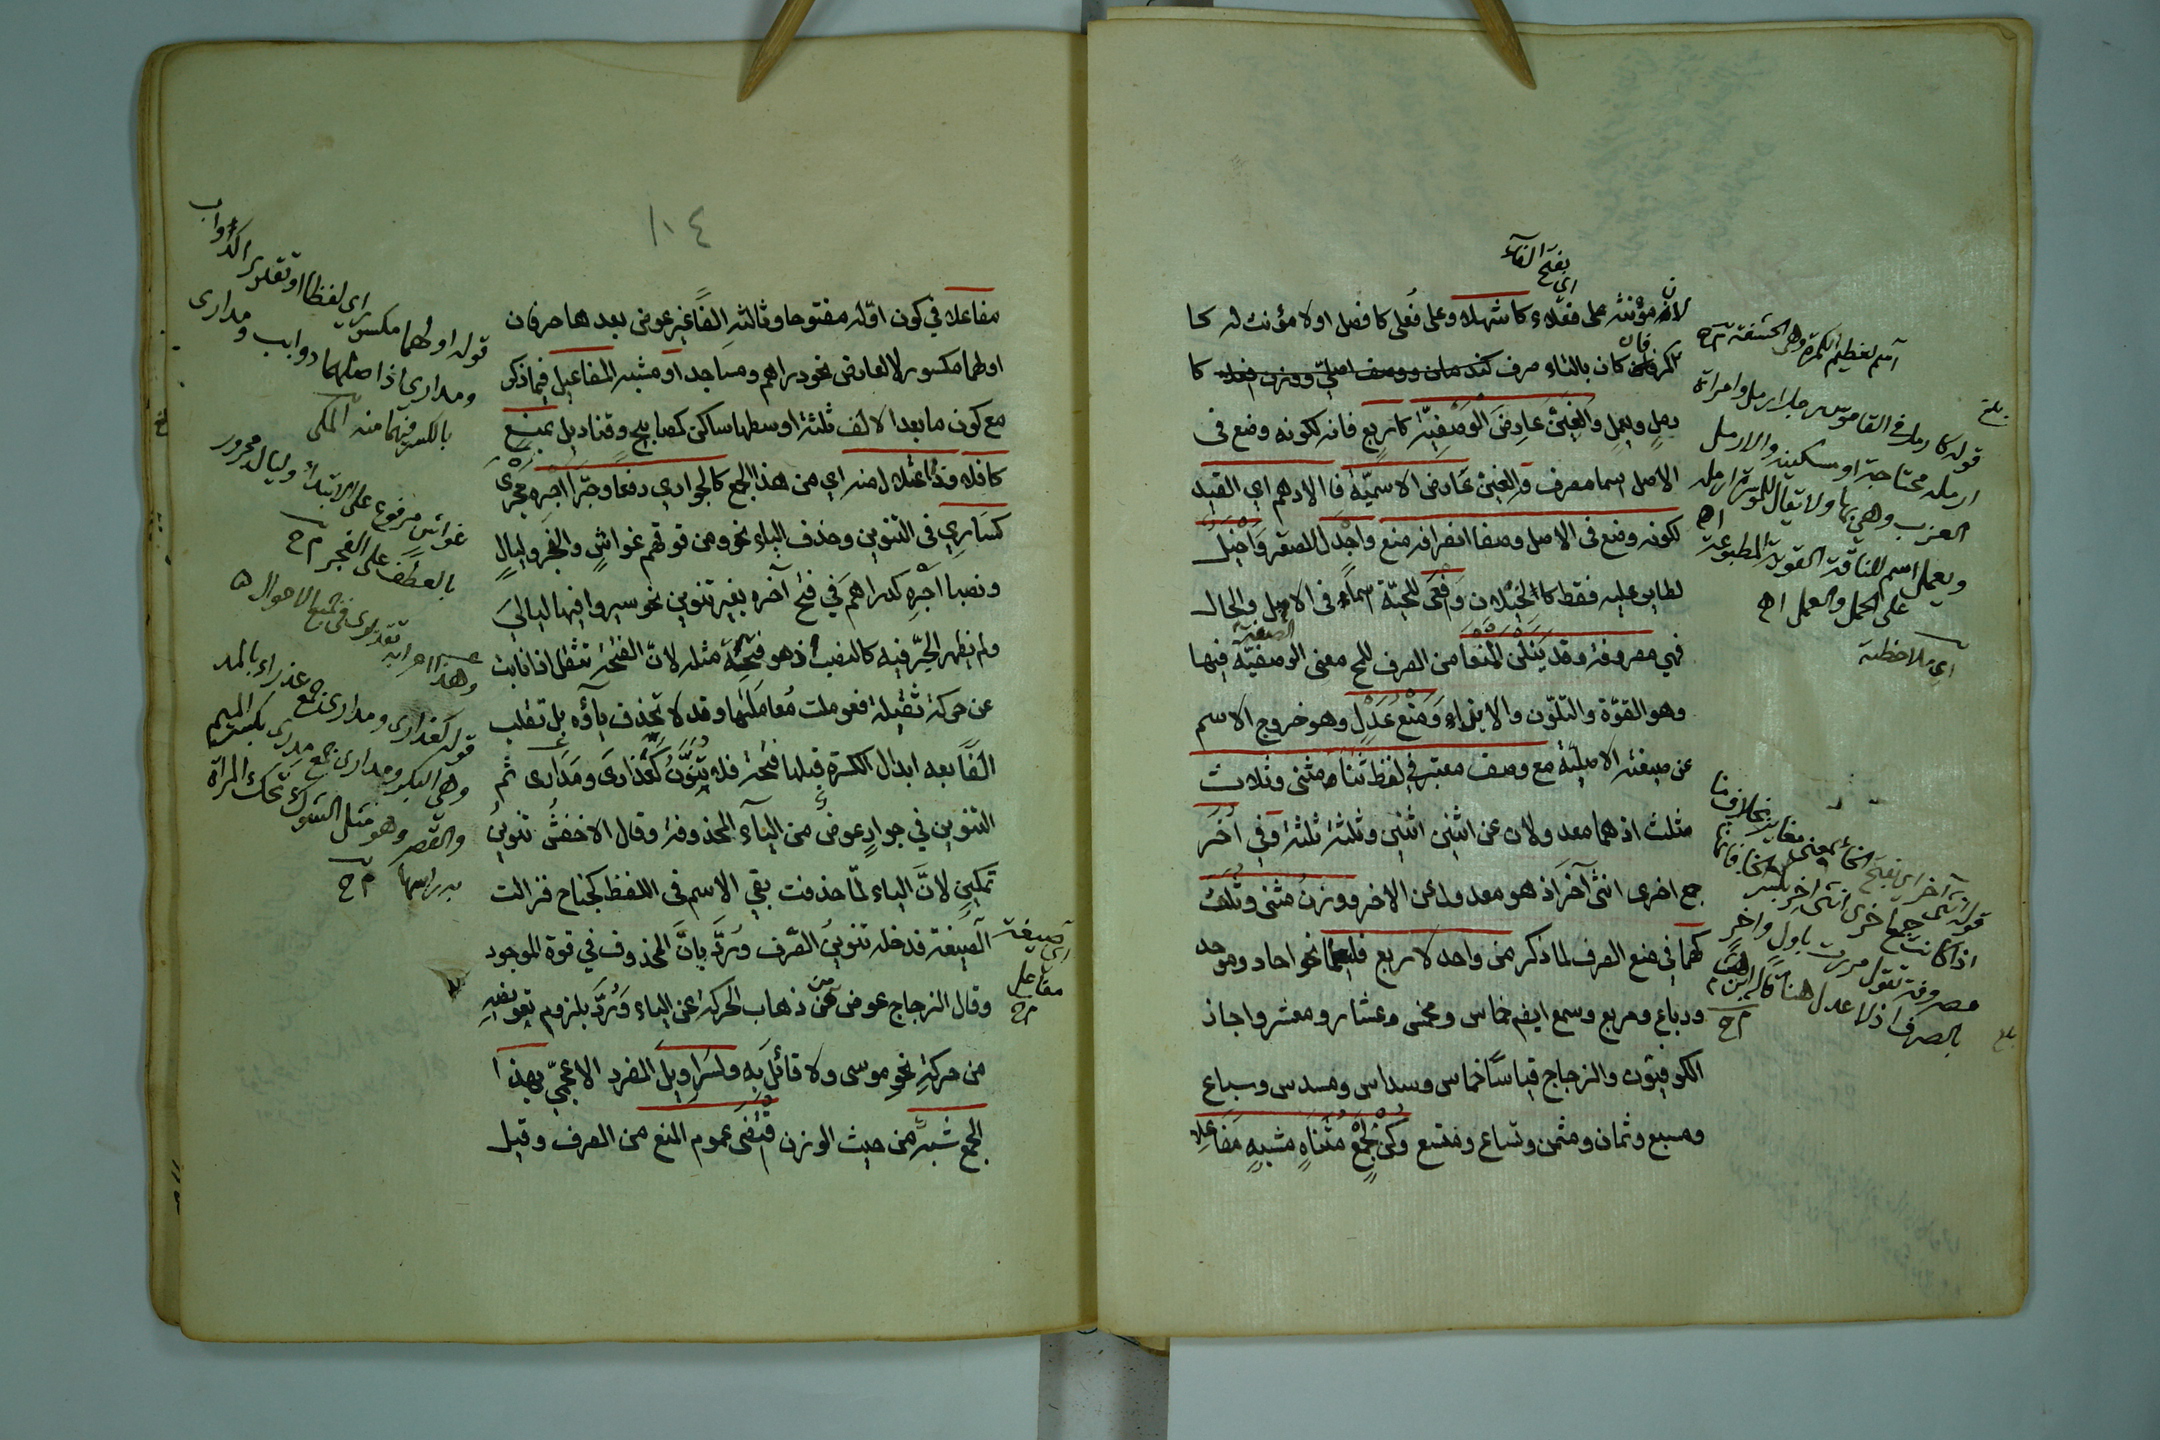 اى بفتح الفآء
لان مؤنثه على فعلاء كاشهلاء وعلى فُعلى كافضل اولا مؤنث له كا
كمر فان كان بالتاء صرف كا
رملٍ ويعملٍ وَالغِيَنَّ عَارِضَ الوَصْفِيَّة كاربع فانه لكونه وضع فى
الاصل اسما مصرف وَالغِيَنَّ عَارضَ الاسميّة فالادهم اي القيد
لكونه وضع فى الاصل وصفا انصرافه منع واجدل للصقر وَاَخيل
لطاير عليه نقط كالخيلان وَافعَى للحيّة اسماء فى الاصل والحال
فهي مصروفة وقد يَنَلنَ المنعا من الصرف للمح معنى الوصفيّة فيها
الصفة
وهو القوّة والتلوّن والايذاء وَمَنعُ عَدلٍ وهو خروج الاسم
عن صيغته الاصليّة مع وصف معتبر في لفظ ثناء ومثنى وثلاث
مثلث اذ هما معدولان عن اثنين اثنين وثلثة ثلثة وَفي اُخَر
جمع اخرى انثى آخَر اذ هو معدول عن الاخر ووزن مثنى وثُلَثَ
كهما في منع الصرف لما ذكر من واحد لاربع فليعلما نحو احاد وموحد
ورباع ومربع وسمع ايضم خماس ومخمس وعشار ومعشر واجاز
الكوفيّون والزجاج قياسًا خماس وسداس ومسدس وسباع
ومسبع وثمان ومثمن وتساع ومتسع وَكن لجمع مُشبهٍ مَفَاعِلا
اسم لعظيم الكمرة وهى الحشفة م ح
قوله كارمل فى القاموس رجل ارمل وامراة
ارملة محتاجة او مسكينة والارمل
العزب وهي بها ولا يقال للموسرة ارملة
اه
ويعمل اسم للناقة القوية المطبوعة
على الحمل والعمل اه
اى ملاحظة
بلغ
قوله انثى آخر اى بفتح الخاء بمعنى مغاير بخلاف ما
اذا كانت جمع اخرى انثى آخِر بكسر الخاء فانها
مصروفة تقول مررت باول واخر
بالصرف اذ لا عدل هنا قاله
م ح
بلغ
١٠٤
مفاعلا في كون اوّله مفتوحا وثالثه الفًا غير عوض بعدها حرفان
اولهما مكسور لا لعارض نحو دراهم ومساجد او مشبه المفاعيل فيما ذكر
مع كون ما بعد الالف ثلثة اوسطها ساكن كمصابيح وقناديل بمنع
كافلا وذا اعتلال منه اي من هذا الجمع كالجواري رفعا وجرّا اَجْرِه مُجرى
كسَاري في التنوين وحذف الياء نحو ومن فوقهم غواشٍ والفجر وليالٍ
ونصبا اَجره كدراهمَ في فتح آخره بغير تنوين نحو سيروا فيها لياليَ
ولم يظهر الجرّ فيه كالنصب اذ هو فتحةٌ مثله لانّ الفتحة تثقل اذا نابت
عن حركة ثقيلة فعوملت مُعاملتها وقد لا تحذف ياؤه بل تقلب
الفًا بعد ابدال الكسرة قبلها فتحة فلا يُنوَّنُ كعذارى ومَدَارى ثم
التنوين في جوارٍ عوضٌ من الياء المحذوفة وقال الاخفش تنوينُ
تمكين لانّ الياء لمّا حذفت بقي الاسم فى اللفظ كجناح فزالت
الصيغة فدخله تنوينُ الصّرف وَرُدَّ بانَّ المحذوف في قوة الموجود
اى صيغة
مفاعل
م ح
وقال الزجاج عوض عن ذهاب الحركة عن الياء وَرُدَّ بلزوم تعويضه
من حركة نحو موسى ولا قائلَ به ولسَراويلَ المفرد الاعجميّ بهذا
الجمع شبهٌ من حيث الوزن اقتضى عموم المنع من الصرف وقيل
قوله اولهما مكسور اى لفظا او تقديرا كدواب
ومدارى اذ اصلهما دوابب ومدارى
بالكسر فيهما منه المكى
غواشٍ مرفوع على الابتداء وليالٍ مجرور
بالعطف على الفجر م ح
وهذا اعرابه تقديرى فى جميع الاحوال
قوله كعذارى ومدارى جمع عذراء بالمد
وهى البكر ومدارى جمع مدرى بكسر الميم
والقصر وهو مثل الشوك تحك المراة
به راسها م ح